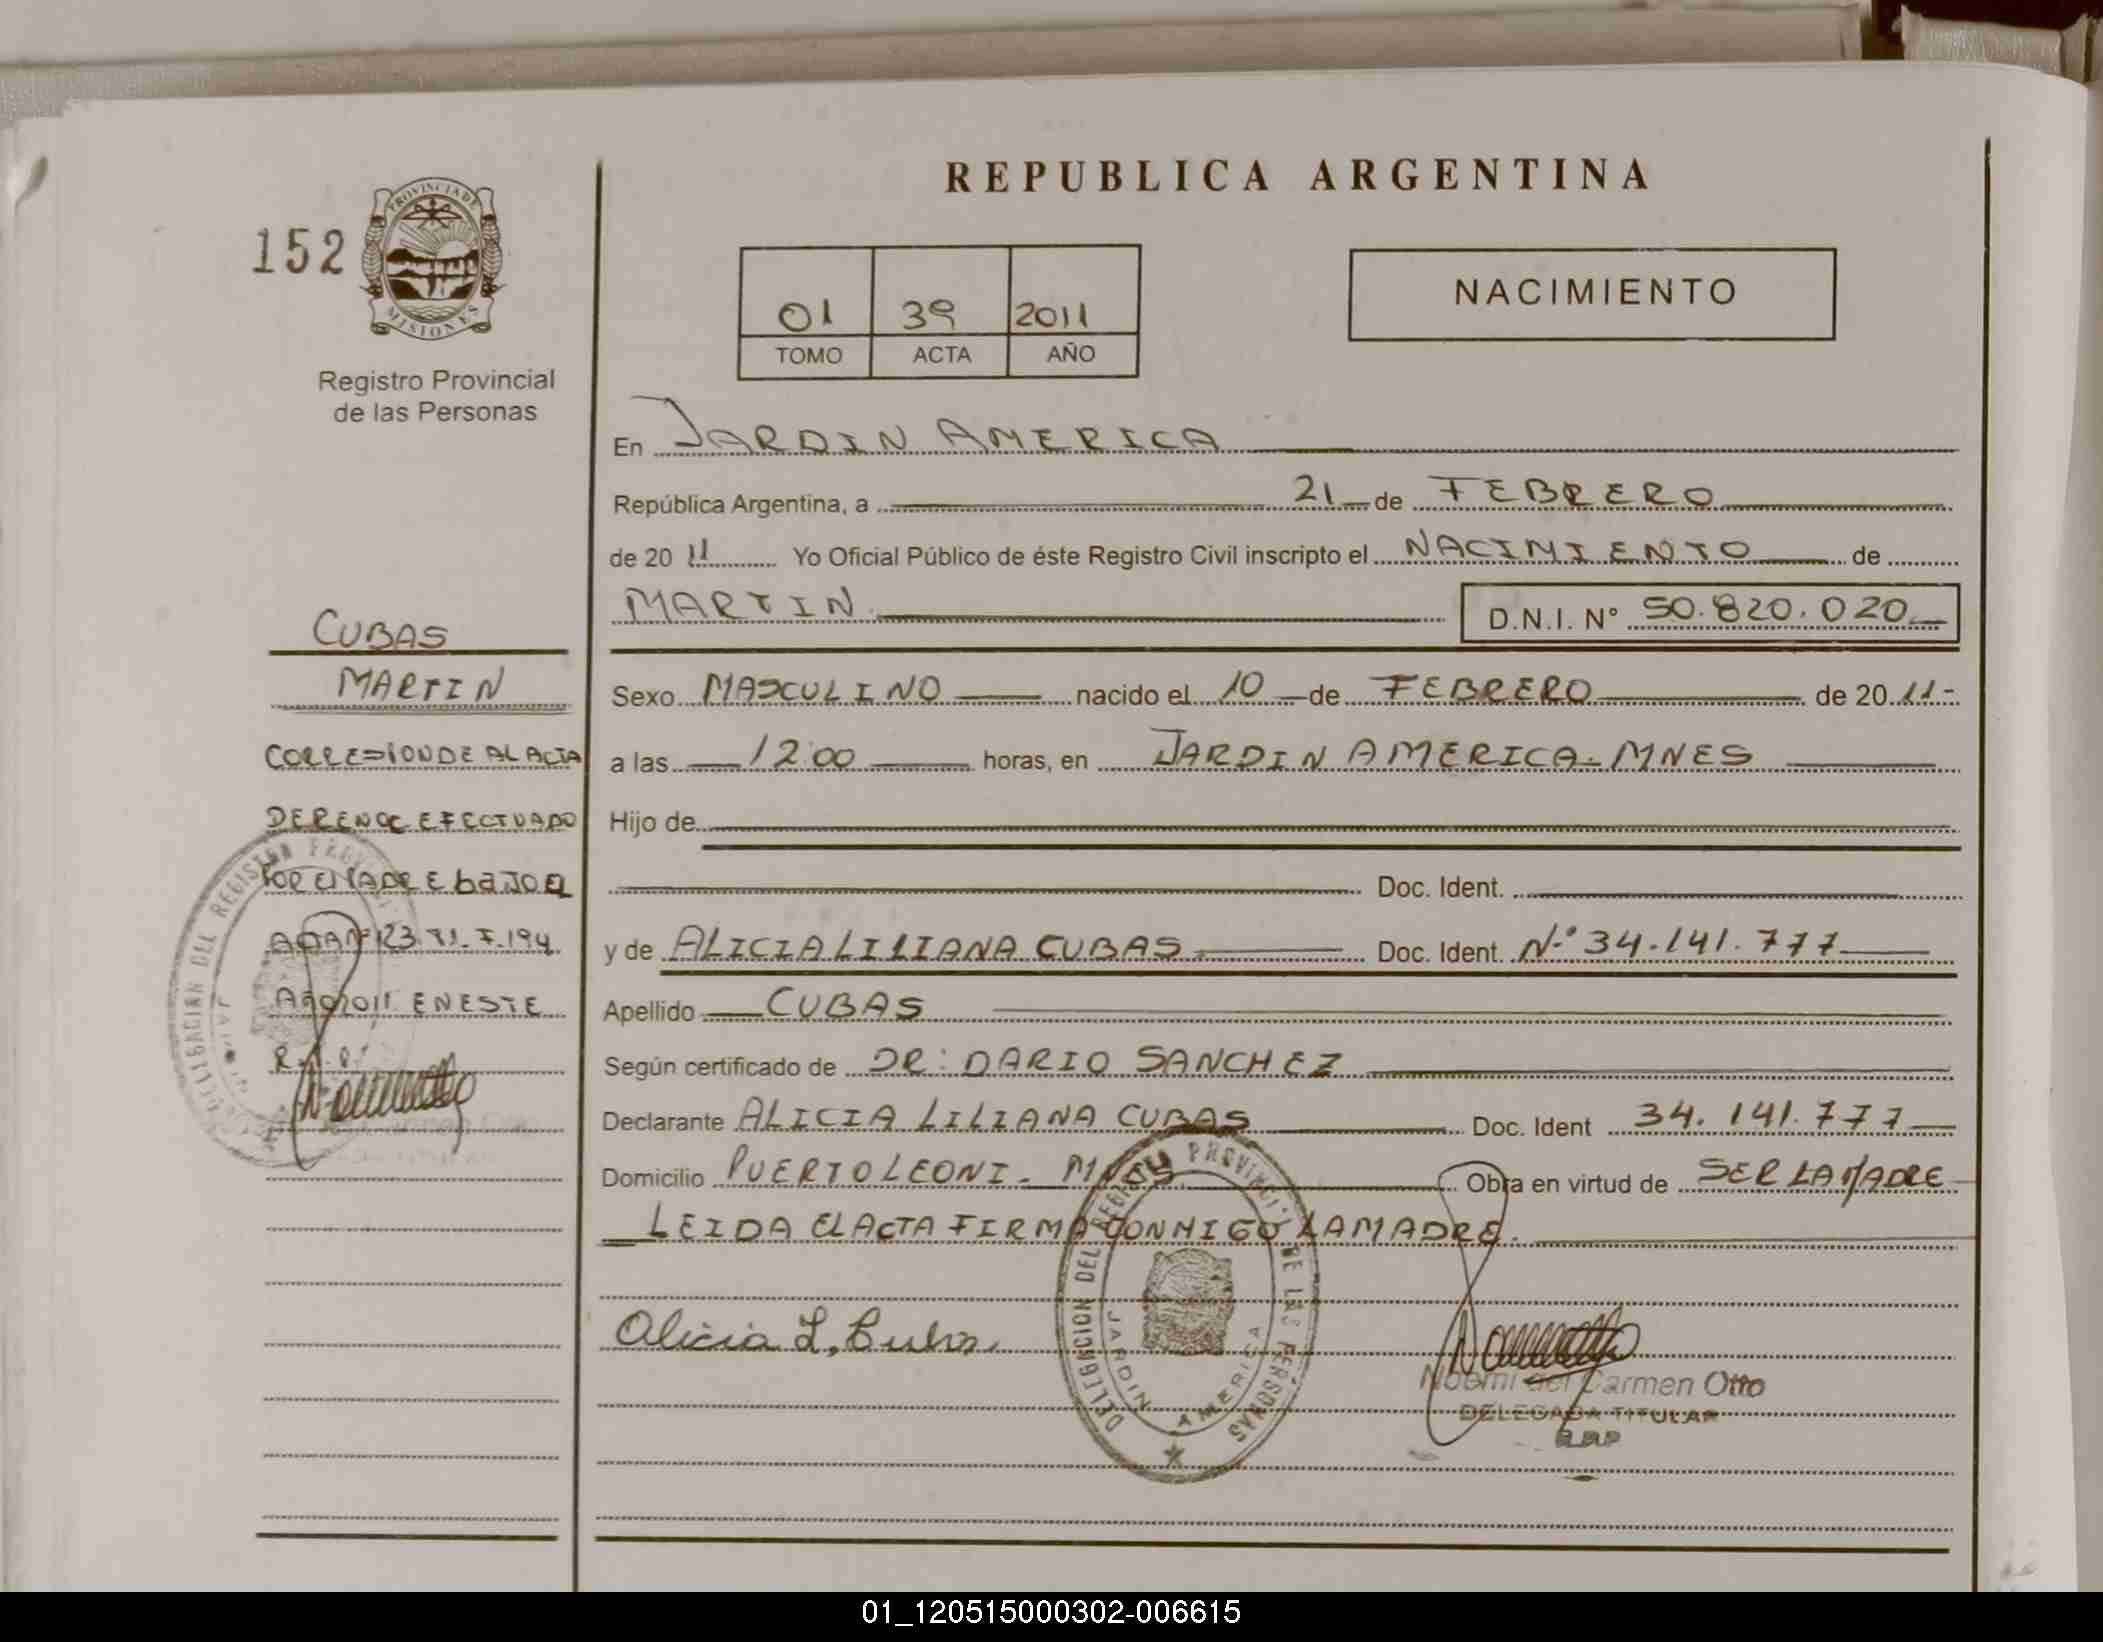 REPUBLICA ARGENTINA
152
PROVINCIA DE
MISIONES
Registro Provincial
de las Personas
01 39 2011
TOMO ACTA AÑO
NACIMIENTO
En JARDIN AMERICA
República Argentina, a 21 de FEBRERO
de 20 11 Yo Oficial Público de éste Registro Civil inscripto el NACIMIENTO de
MARTIN D.N.I. Nº 50.820.020
Sexo MASCULINO nacido el 10 de FEBRERO de 20 11-
a las 12:00 horas, en JARDIN AMERICA-MNES
Hijo de
Doc. Ident.
y de ALICIA LILIANA CUBAS Doc. Ident. Nº 34.141.777
Apellido CUBAS
Según certificado de DR: DARIO SANCHEZ
Declarante ALICIA LILIANA CUBAS Doc. Ident 34.141.777
Domicilio PUERTO LEONI - Obra en virtud de SER LA MADRE
LEIDA EL ACTA FIRMA CONMIGO LA MADRE.
Alicia L. Cubas
DELEGACION DEL REGISTRO PROVINCIAL DE LAS PERSONAS
JARDIN AMERICA
Noemi del Carmen Otto
DELEGADA TITULAR
R.P.P
CUBAS
MARTIN
CORRESPONDE AL ACTA
DE RENOC EFECTUADO
POR EL PADRE bajo el
ACTA Nº 123 T1. F. 194
AÑO 2011 EN ESTE
DELEGACION DEL REGISTRO
01_120515000302-006615